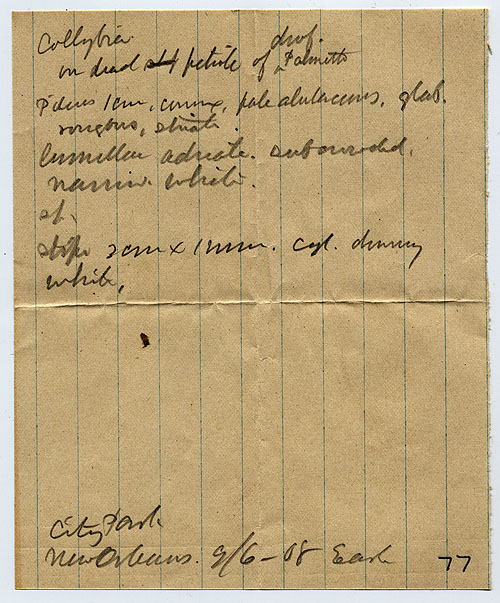 Collybia
on dead petiole of dwf. Palmetto
Pileus 1cm, convex, pale alutaceous, glab.
rugous, striate.
Lamellae adnate. subcrowded.
narrow. white.
sp.
stipe 2cm x 1mm. cyl.
white,
City Park
New Orleans. 9/6-08 Earle
77